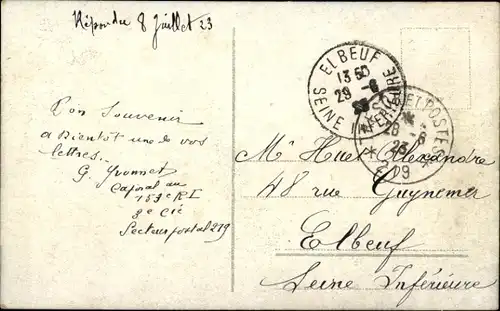 Répondu 8 Juillet 23
ELBEUF
13 50
29 - 6
SEINE INFERIEURE
ET POSTES
28 - 6
23
Bon Souvenir
a Bientôt une de vos
lettres.
G. Yvonnet
Caporal au
159e RI
8e Cie
Secteur postal 219
Mr Huet Alexandre
48 rue Guynemer
Elbeuf
Seine Inférieure